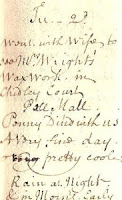 Tu. 29
Went with Wife to
see Mrs Wright's
Waxwork in
Chidley Court
Pall Mall
Penny Dined with us
A Very fine day
pretty cool
Rain at Night